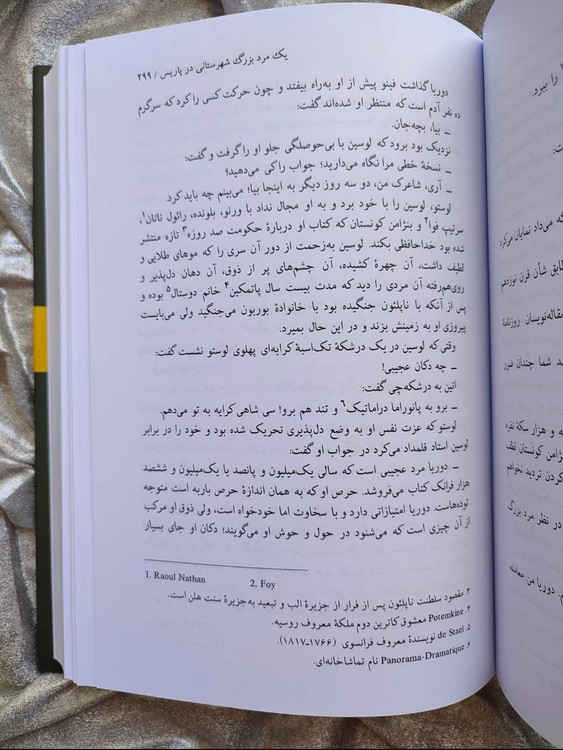 یک مرد بزرگ شهرستانی در پاریس / ۲۹۹
دوریا گذاشت فینو پیش از او به‌راه بیفتد و چون حرکت کسی را کرد که سرگرم
ده نفر آدم است که منتظر او شده‌اند گفت:
ـ بیا، بچه‌جان.
نزدیک بود برود که لوسین با بی‌حوصلگی جلو او را گرفت و گفت:
ـ نسخهٔ خطی مرا نگاه می‌دارید؛ جواب را کی می‌دهید؟
ـ آری، شاعرک من، دو سه روز دیگر به اینجا بیا؛ می‌بینم چه باید کرد.
لوستو، لوسین را با خود برد و به او مجال نداد با ورنو، بلونده، رائول ناتان۱،
سرتیپ فوا۲ و بنژامن کونستان که کتاب او دربارهٔ حکومت صد روزه۳ تازه منتشر
شده بود خداحافظی بکند. لوسین به‌زحمت از دور آن سری را که موهای طلایی و
لطیف داشت، آن چهرهٔ کشیده، آن چشم‌های پر از ذوق، آن دهان دلپذیر و
روی‌هم‌رفته آن مردی را دید که مدت بیست سال پاتمکین۴ خانم دوستال۵ بوده و
پس از آنکه با ناپلئون جنگیده بود با خانوادهٔ بوربون می‌جنگید ولی می‌بایست
پیروزی او به زمینش بزند و در این حال بمیرد.
وقتی که لوسین در یک درشکهٔ تک‌اسبهٔ کرایه‌ای پهلوی لوستو نشست گفت:
ـ چه دکان عجیبی!
اتین به درشکه‌چی گفت:
ـ برو به پانوراما دراماتیک۶ و تند هم برو! سی شاهی کرایه به تو می‌دهم.
لوستو که عزت نفس او به وضع دل‌پذیری تحریک شده بود و خود را در برابر
لوسین استاد قلمداد می‌کرد در جواب او گفت:
ـ دوریا مرد عجیبی است که سالی یک‌میلیون و پانصد یا یک‌میلیون و ششصد
هزار فرانک کتاب می‌فروشد. حرص او که به همان اندازهٔ حرص باربه است متوجه
توده‌هاست. دوریا امتیازاتی دارد و با سخاوت اما خودخواه است، ولی ذوق او مرکب
از آن چیزی است که می‌شنود در حول و حوش او می‌گویند؛ دکان او جای بسیار
1. Raoul Nathan 2. Foy
۳. مقصود سلطنت ناپلئون پس از فرار از جزیرهٔ الب و تبعید به‌جزیرهٔ سنت هلن است.
۴. Potemkine معشوق کاترین دوم ملکهٔ معروف روسیه.
۵. de Stael نویسندهٔ معروف فرانسوی (۱۷۶۶ـ۱۸۱۷).
۶. Panorama-Dramatique نام تماشاخانه‌ای.
را ببرد.
گه می‌داد نمایان می‌کرد
طابق شأن قرن نوزدهم
مقاله‌نویسان روزنامهٔ
د شما چندان ضرر
ه و هزار سکهٔ نقره
ژامن کونستان لطف
کردن تردید نخواهم
در نظر مرد بزرگ
دوریا من معامله